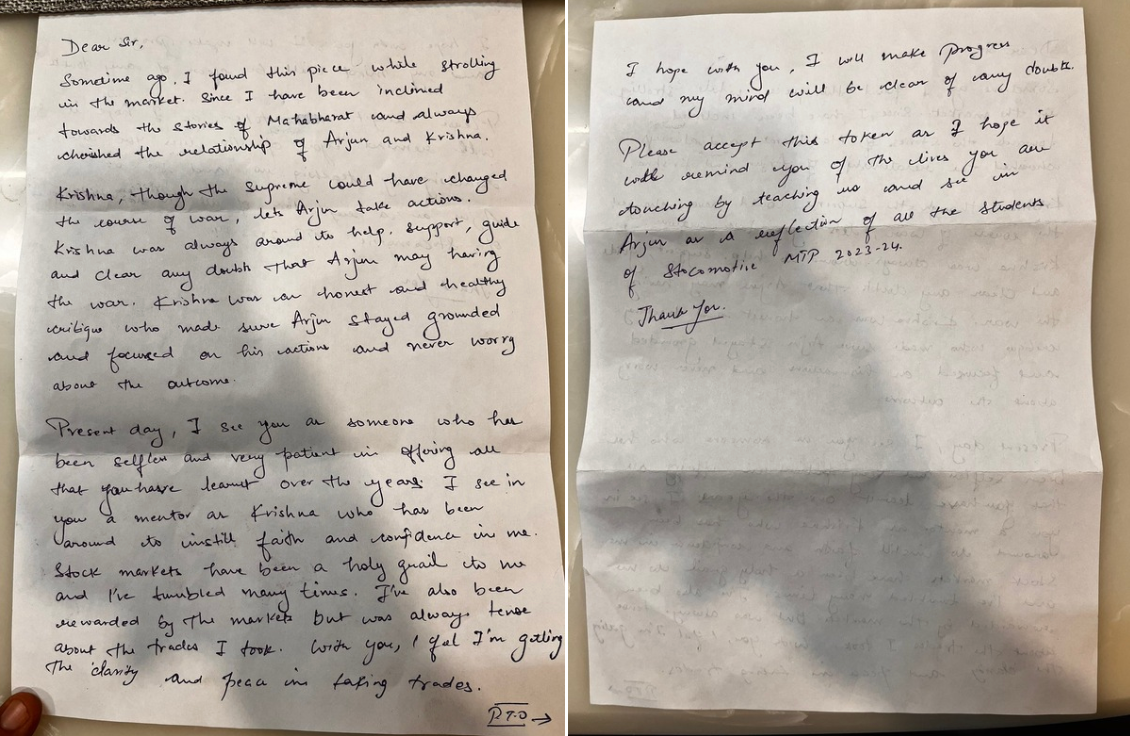 Dear Sir,
Sometime ago, I found this piece while strolling
in the market. Since I have been inclined
towards the stories of Mahabharat and always
cherished the relationship of Arjun and Krishna.
Krishna, though the supreme could have changed
the course of war, lets Arjun take actions.
Krishna was always around to help, support, guide
and clear any doubt that Arjun may having
the war. Krishna was an honest and healthy
critique who made sure Arjun stayed grounded
and focused on his actions and never worry
about the outcome.
Present day, I see you as someone who has
been selfless and very patient in offering all
that you have learnt over the years. I see in
you a mentor as Krishna who has been
around to instill faith and confidence in me.
Stock markets have been a holy grail to me
and I've tumbled many times. I've also been
rewarded by the markets but was always tense
about the trades I took. With you, I feel I'm getting
the clarity and peace in taking trades.
P.T.O →
I hope with you, I will make progress
and my mind will be clear of any doubts.
Please accept this token as I hope it
will remind you of the lives you are
touching by teaching us and see in
Arjun as a reflection of all the students
of Stocomotive MTP 2023-24.
Thank You.